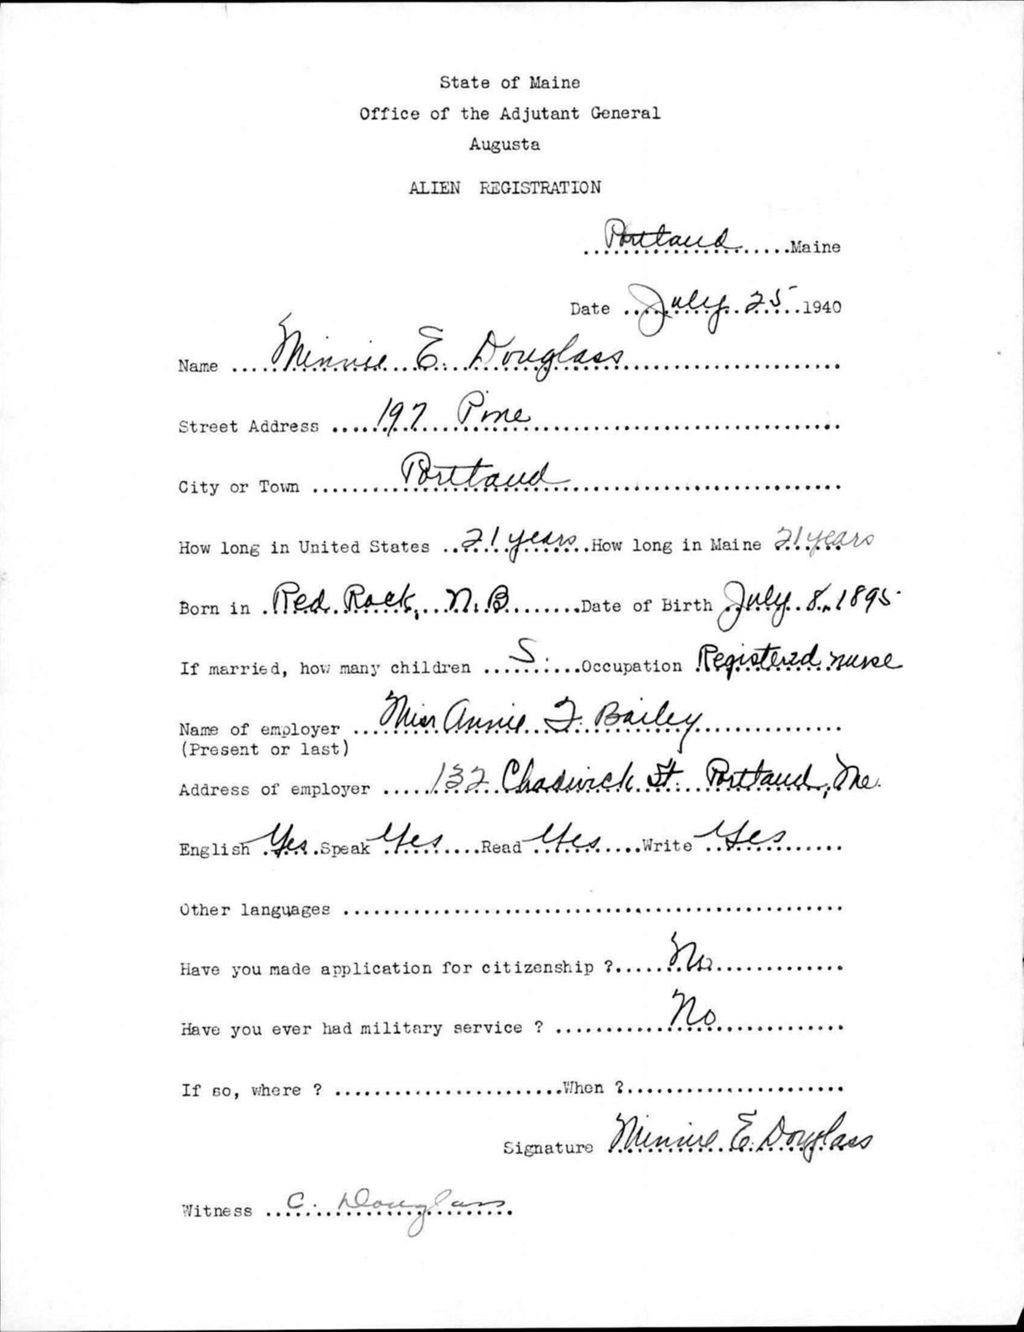 State of Maine
Office of the Adjutant General
Augusta
ALIEN REGISTRATION
Portland Maine
Date July 25 1940
Name Minnie E. Douglass
Street Address 197 Pine
City or Town Portland
How long in United States 21 years How long in Maine 21 years
Born in Red Rock, N.B. Date of Birth July 8, 1895
If married, how many children S. Occupation Registered nurse
Name of employer Miss Annie F. Bailey
(Present or last)
Address of employer 132 Chadwick St. Portland, Me.
English Yes Speak Yes Read Yes Write Yes
Other languages
Have you made application for citizenship ? No
Have you ever had military service ? No
If so, where ? When ?
Signature Minnie E. Douglass
Witness C. Douglass